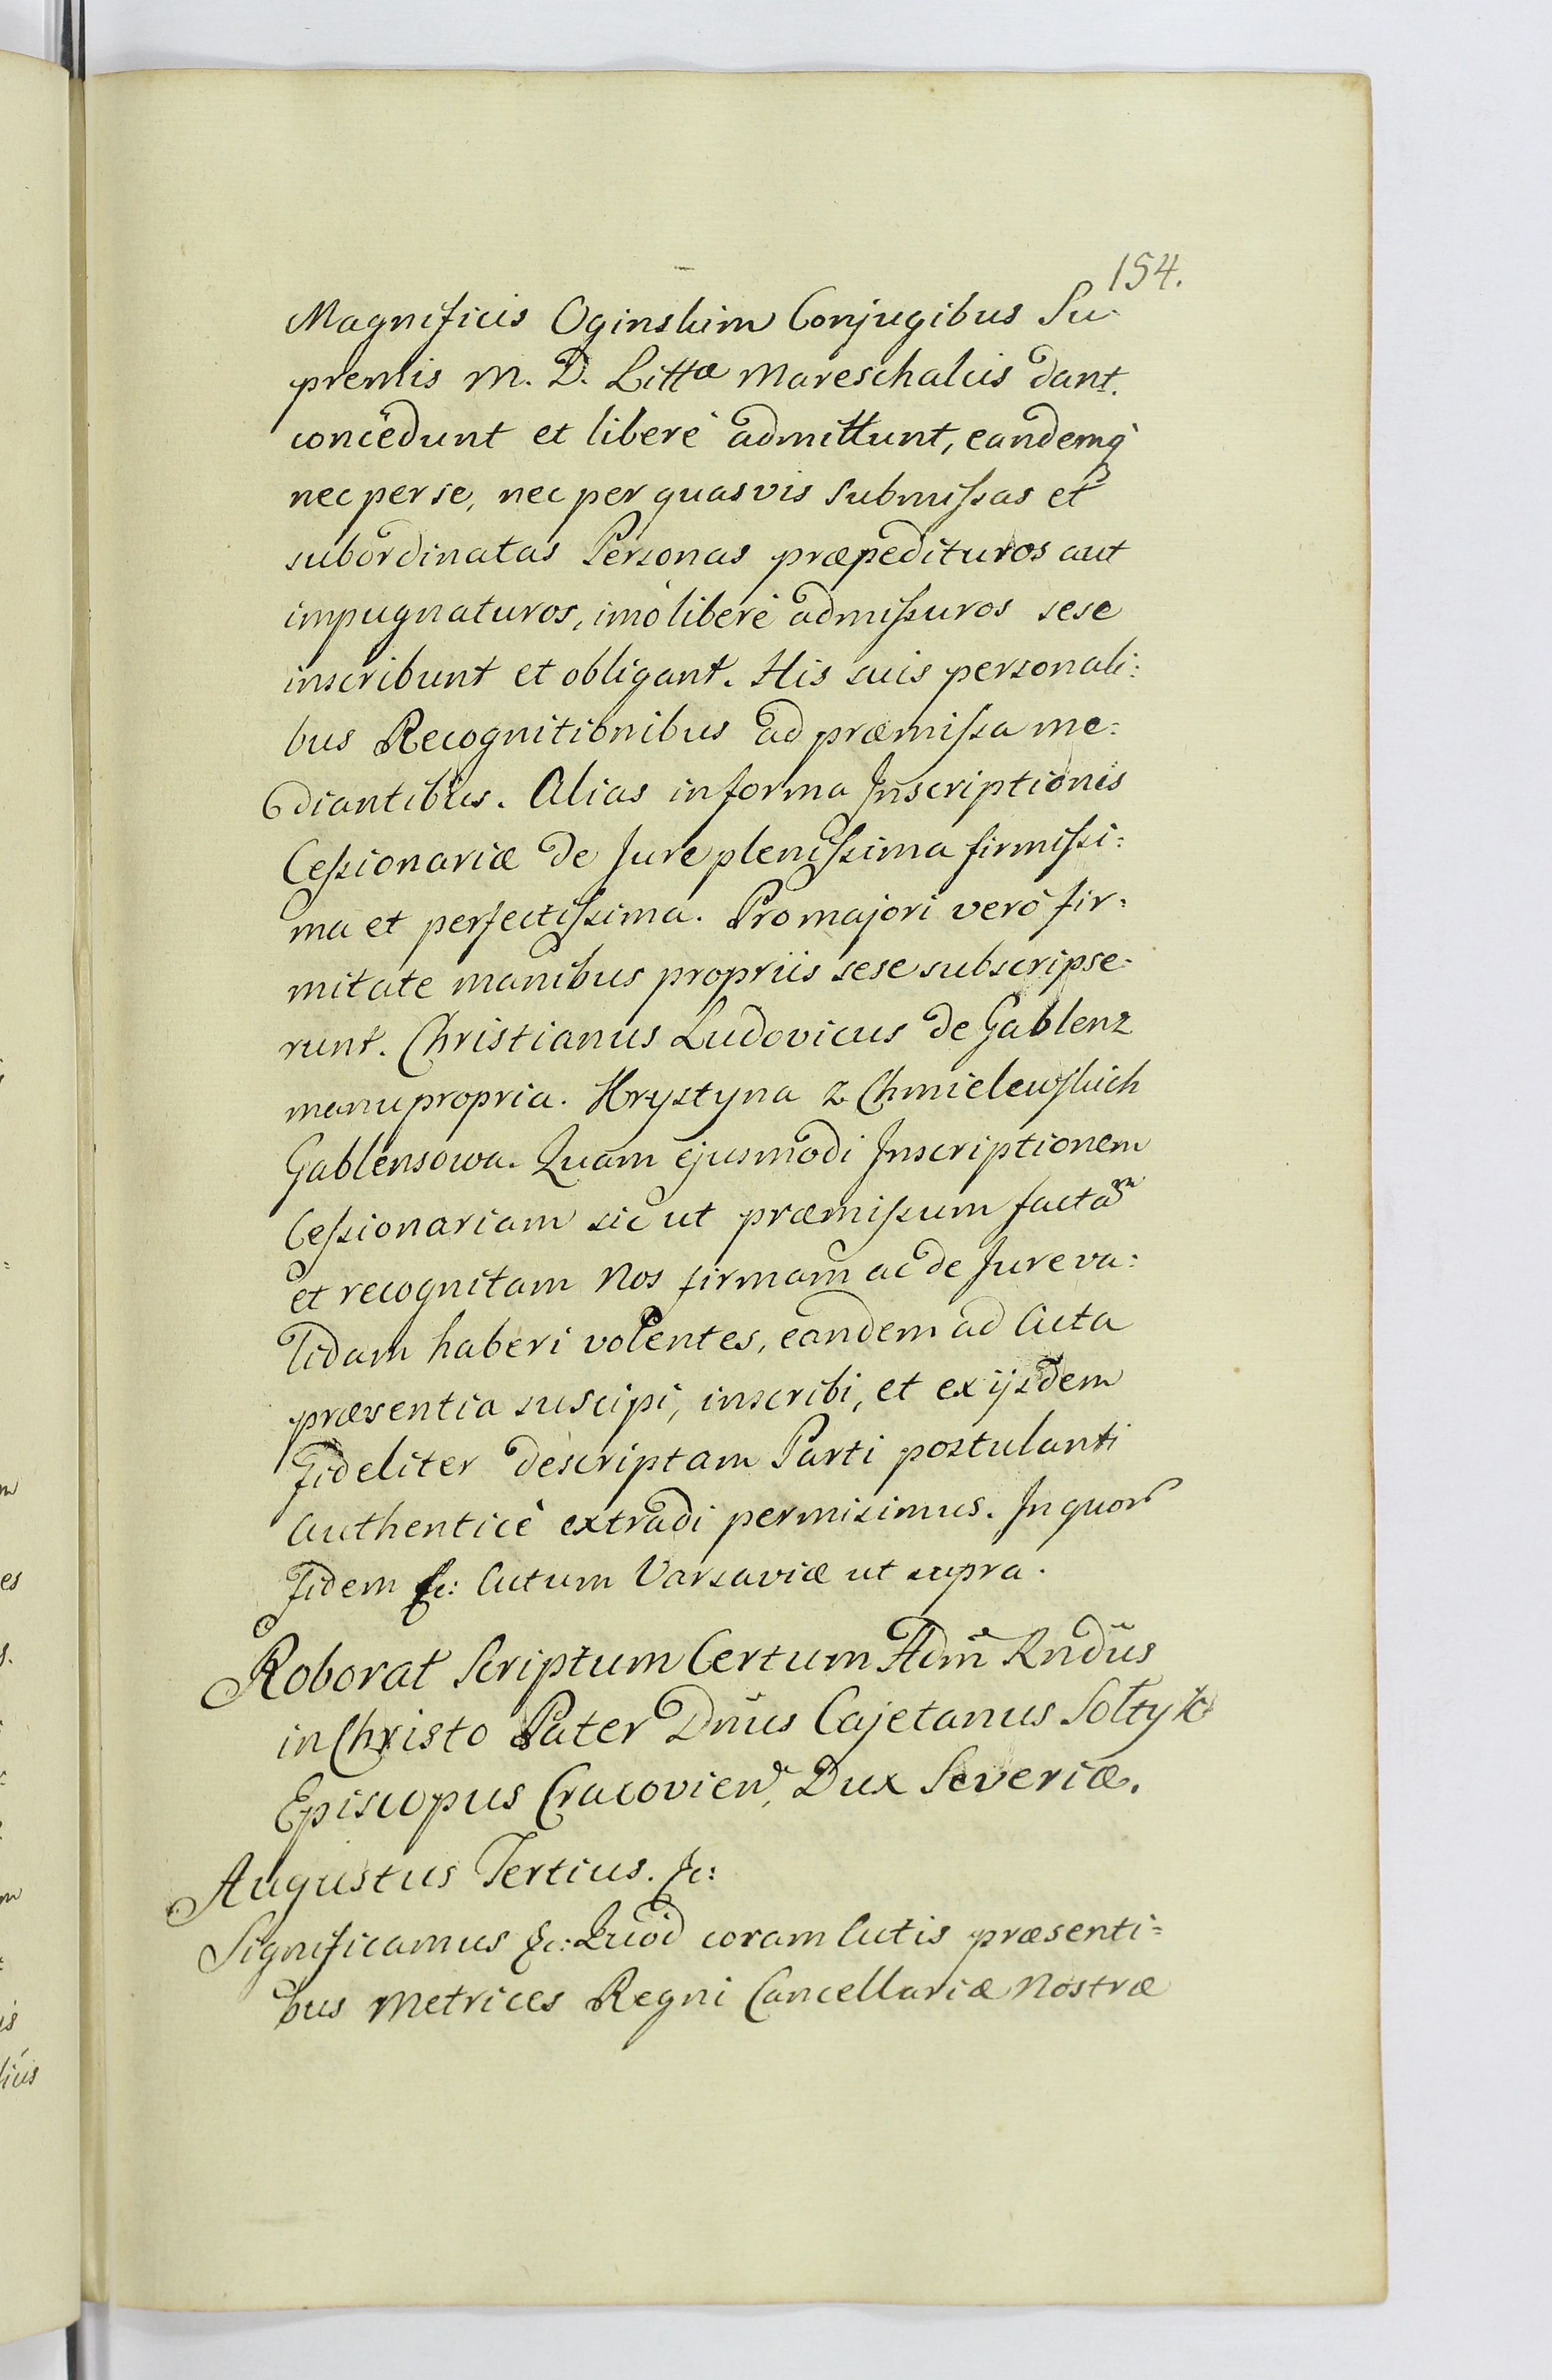 154.
Magnificis Oginskim Conjugibus Su-
premis M. D. Littæ Mareschalcis dant.
concedunt et liberè admittunt, eandemq̀
nec per se, nec per quasvis submissas et
subordinatas Personas præpedituros aut
impugnaturos, imò liberè admissuros sese
inscribunt et obligant. His suis personali:
bus Recognitionibus ad præmissa me:
diantibus. Alias in forma Inscriptionis
Cessionariæ de Jure plenissima firmissi:
ma et perfectissima. Pro majori verò fir:
mitate manibus propriis sese subscripse-
runt. Christianus Ludovicus de Gablenz
manu propria. Krystyna z Chmielewskich
Gablensowa. Quam ejusmodi Inscriptionem
Cessionariam sic ut præmissum factam
et recognitam Nos firmam ac de Jure va:
lidam haberi volentes, eandem ad Acta
præsentia suscipi, inscribi, et ex ijsdem
fideliter descriptam Parti postulanti
Authenticè extradi permisimus. In quor
fidem &c: Actum Varsaviæ ut supra.
Roborat Scriptum Certum Adm̃ Rnd̃us
in Christo Pater Dn̄us Cajetanus Sołtyk
Episcopus Cracovien, Dux Severiæ.
Augustus Tertius. &c:
Significamus &c: Quod coram Actis præsenti=
bus Metrices Regni Cancellariæ Nostræ